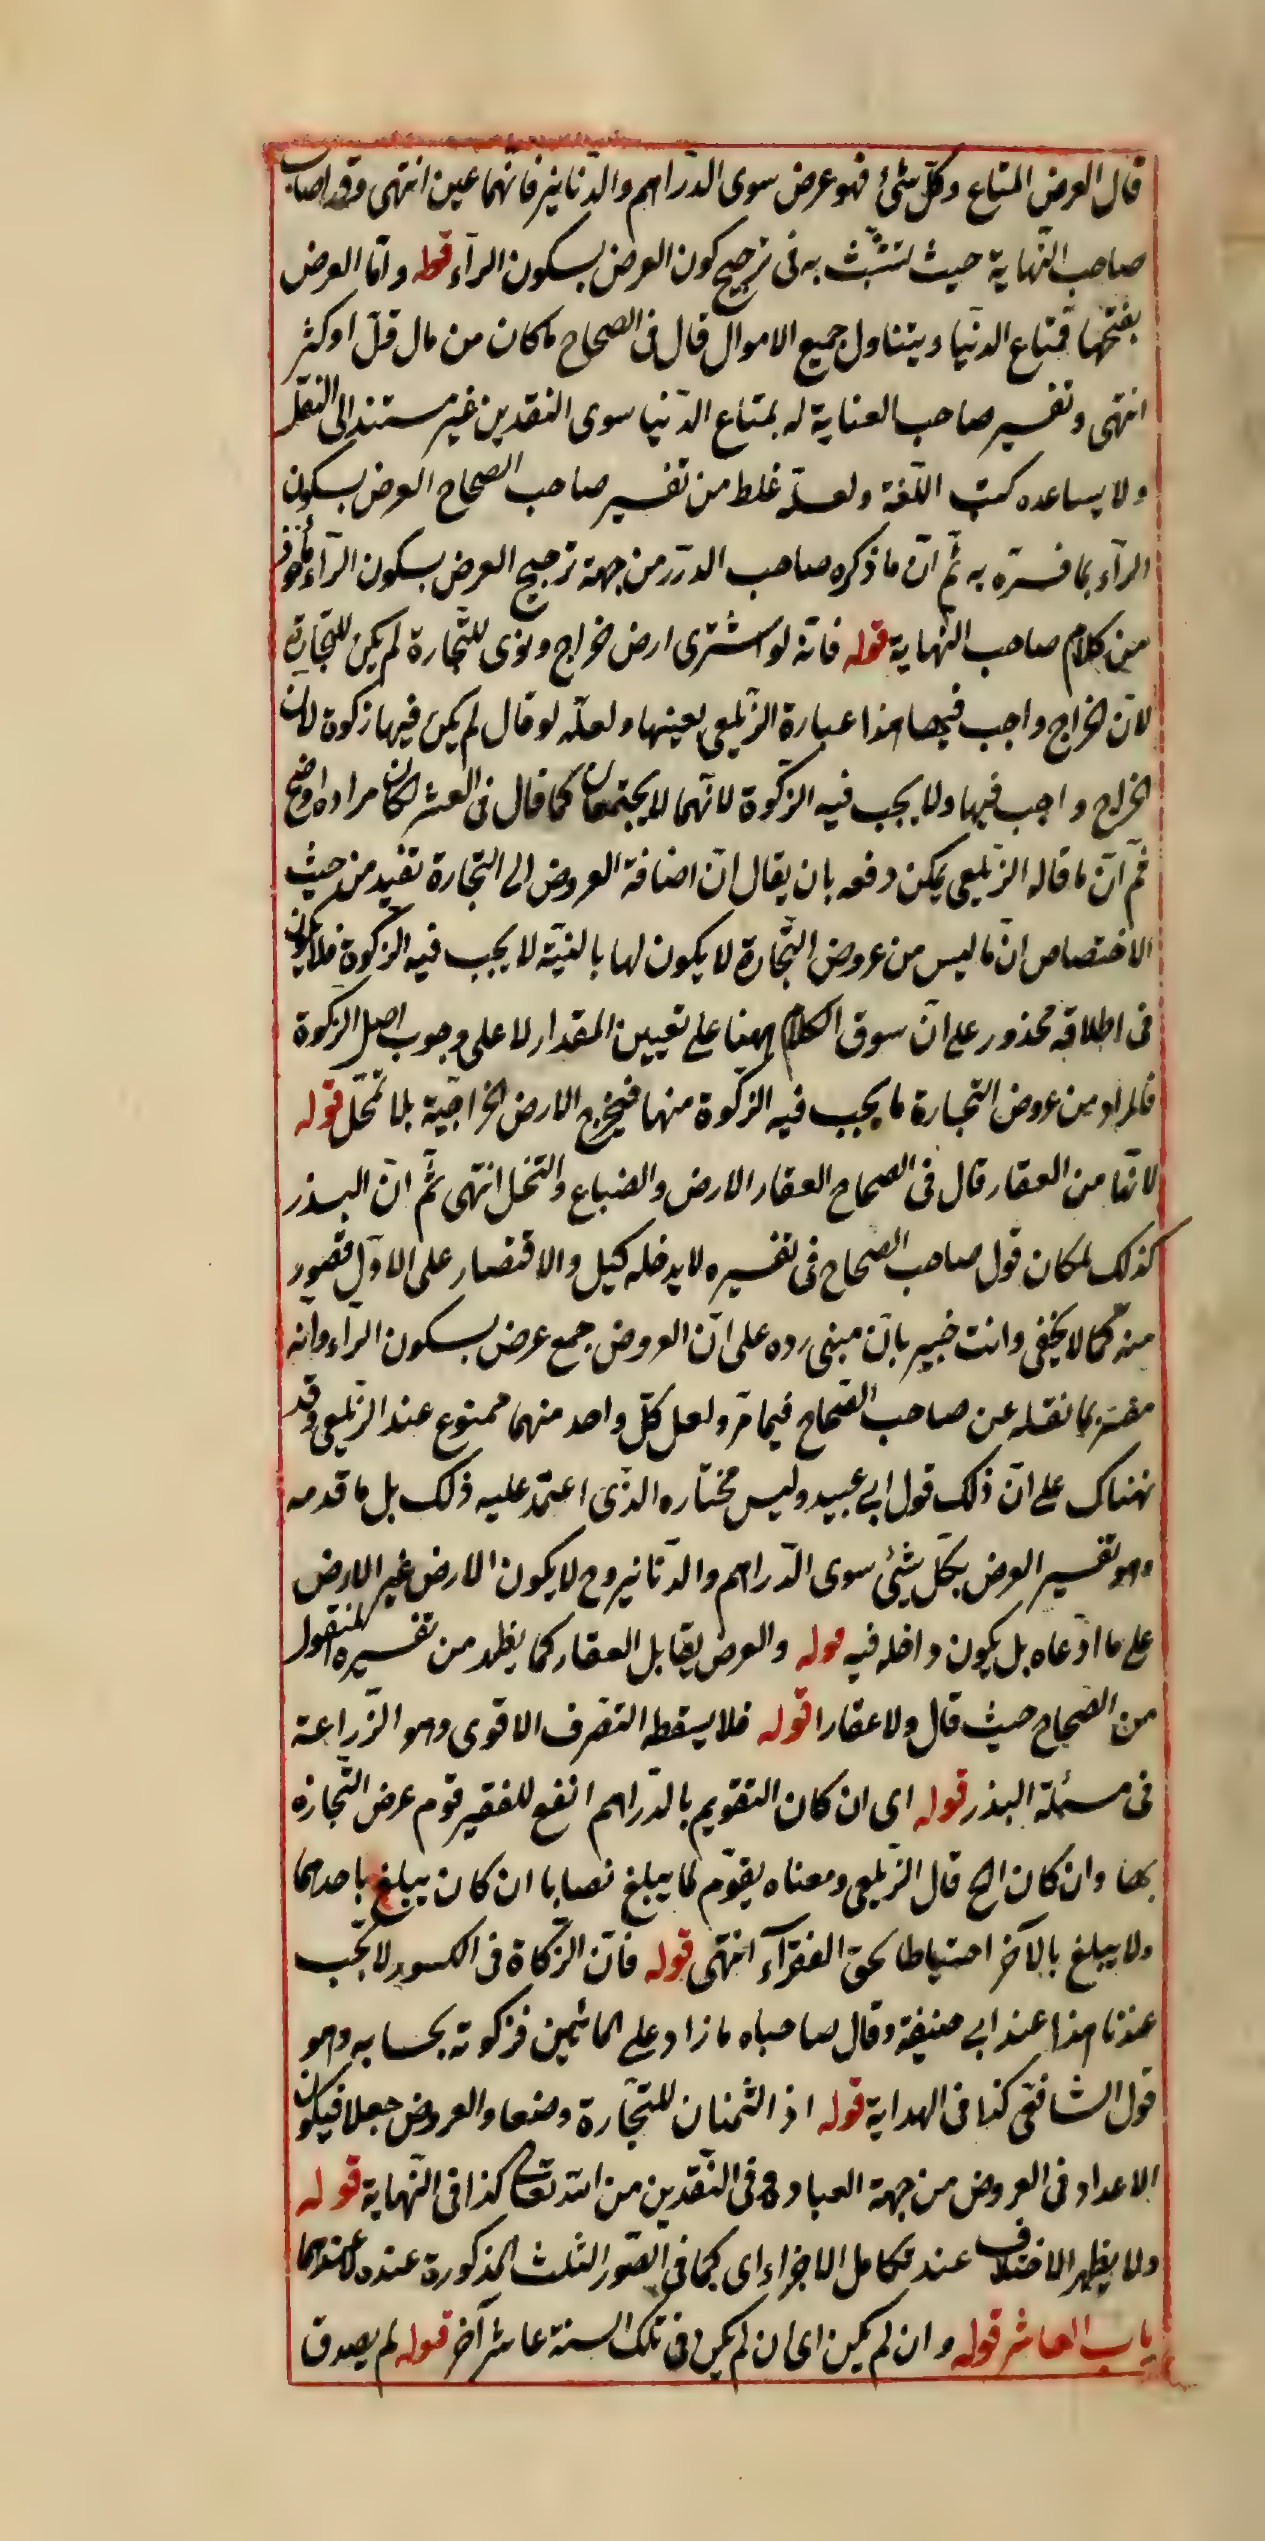 قال العرض المتاع وكلّ شئ فهو عرض سوى الدّراهم والدّنانير فانّهما عين انتهى وقد اصاب
صاحب النّهاية حيث تشبّث به فى ترجيح كون العرض بسكون الرآء قوله وامّا العرض
بفتحها فمتاع الدنّيا ويتناول جميع الاموال قال فى الصحاح ما كان من مال قلّ او كثر
انتهى وتفسير صاحب العناية له بمتاع الدّنيا سوى النقدين غير مستند الى النقل
ولا يساعده كتب اللّغة ولعلّه غلط من تفسير صاحب الصحاح العرض بسكون
الرآء بما فسرّه به ثمّ انّ ما ذكره صاحب الدرر من جهة ترجيح العرض بسكون الرآء مأخوذ
من كلام صاحب النّهاية قوله فانّه لو اشترى ارض خراج ونوى للتّجارة لم يكن للتجارة
لانّ الخراج واجب فيها هذا عبارة الزّيلعى بعينها ولعلّه لو قال لم يكن فيها زكوة لان
الخراج واجب فيها ولا يجب فيه الزكوة لانّهما لا يجتمعان كما قال فى العشر لكان مراده اوضح
ثمّ انّ ما قاله الزّيلعى يمكن دفعه بان يقال انّ اضافة العروض الى التجارة تفيد من حيث
الاختصاص انّ ما ليس من عروض التّجارة لا يكون لها بالنيّة لا يجب فيه الزكوة فلا يكون
فى اطلاقه محذور على انّ سوق الكلام ههنا على تعيين المقدار لا على وجوب اصل الزكوة
فالمراد من عروض التجارة ما يجب فيه الزكوة منها فيخرج الارض الخراجيّة بلا تمحّل قوله
لانّها من العقار قال فى الصحاح العقار الارض والضياع والنّخل انتهى ثمّ انّ البذر
كذلك لمكان قول صاحب الصّحاح فى تفسيره لا يدخله كيل والاقتصار على الاوّل قصور
منه كما لا يخفى وانت خبير بانّ مبنى رده على انّ العروض جمع عرض بسكون الرآء وانه
مفسّر بما نقله عن صاحب الصّحاح فيما مرّ ولعل كلّ واحد منهما ممنوع عند الزّيلعى وقد
نبهناك على انّ ذلك قول ابى عبيد وليس مختاره الذّى اعتمّد عليه ذلك بل ما قدمه
وهو تفسير العرض بكلّ شئ سوى الدّراهم والدّنانير وح لا يكون الارض غير العرض
على ما ادّعاه بل يكون داخله فيه قوله والعرض يقابل العقار كما يظهر من تفسيره المنقول
من الصّحاح حيث قال ولا عقارا قوله فلا يسقطه التصّرف الاقوى وهو الزّراعة
فى مسئلة البذر قوله اى ان كان التقويم بالدّراهم انفع للفقير قوم عرض التّجارة
بها وان كان الخ قال الزّيلعى ومعناه يقوّم بما يبلغ نصابا ان كان يبلغ باحدهما
ولا يبلغ بالآخر احتياطا لحقّ الفقرآء انتهى قوله فانّ الزّكاة فى الكسور لا تجب
عندنا هذا عند ابى حنيفة وقال صاحباه ما زاد على المائتين فزكوته بحسابه وهو
قول الشافعى كذا فى الهداية قوله اذ الثّمنان للتّجارة وضعا والعروض جعلا فيكون
الاعداد فى العروض من جهة العباد وفى النّقدين من الله تعالى كذا فى النّهاية قوله
ولا يظهر الاختلاف عند تكامل الاجزاء اى كما فى الصّور الثلث المذكورة عنده لا عندهما
باب العاشر قوله وان لم يكن اى ان لم يكن فى تلك السنة عاشر آخر قوله لم يصدق